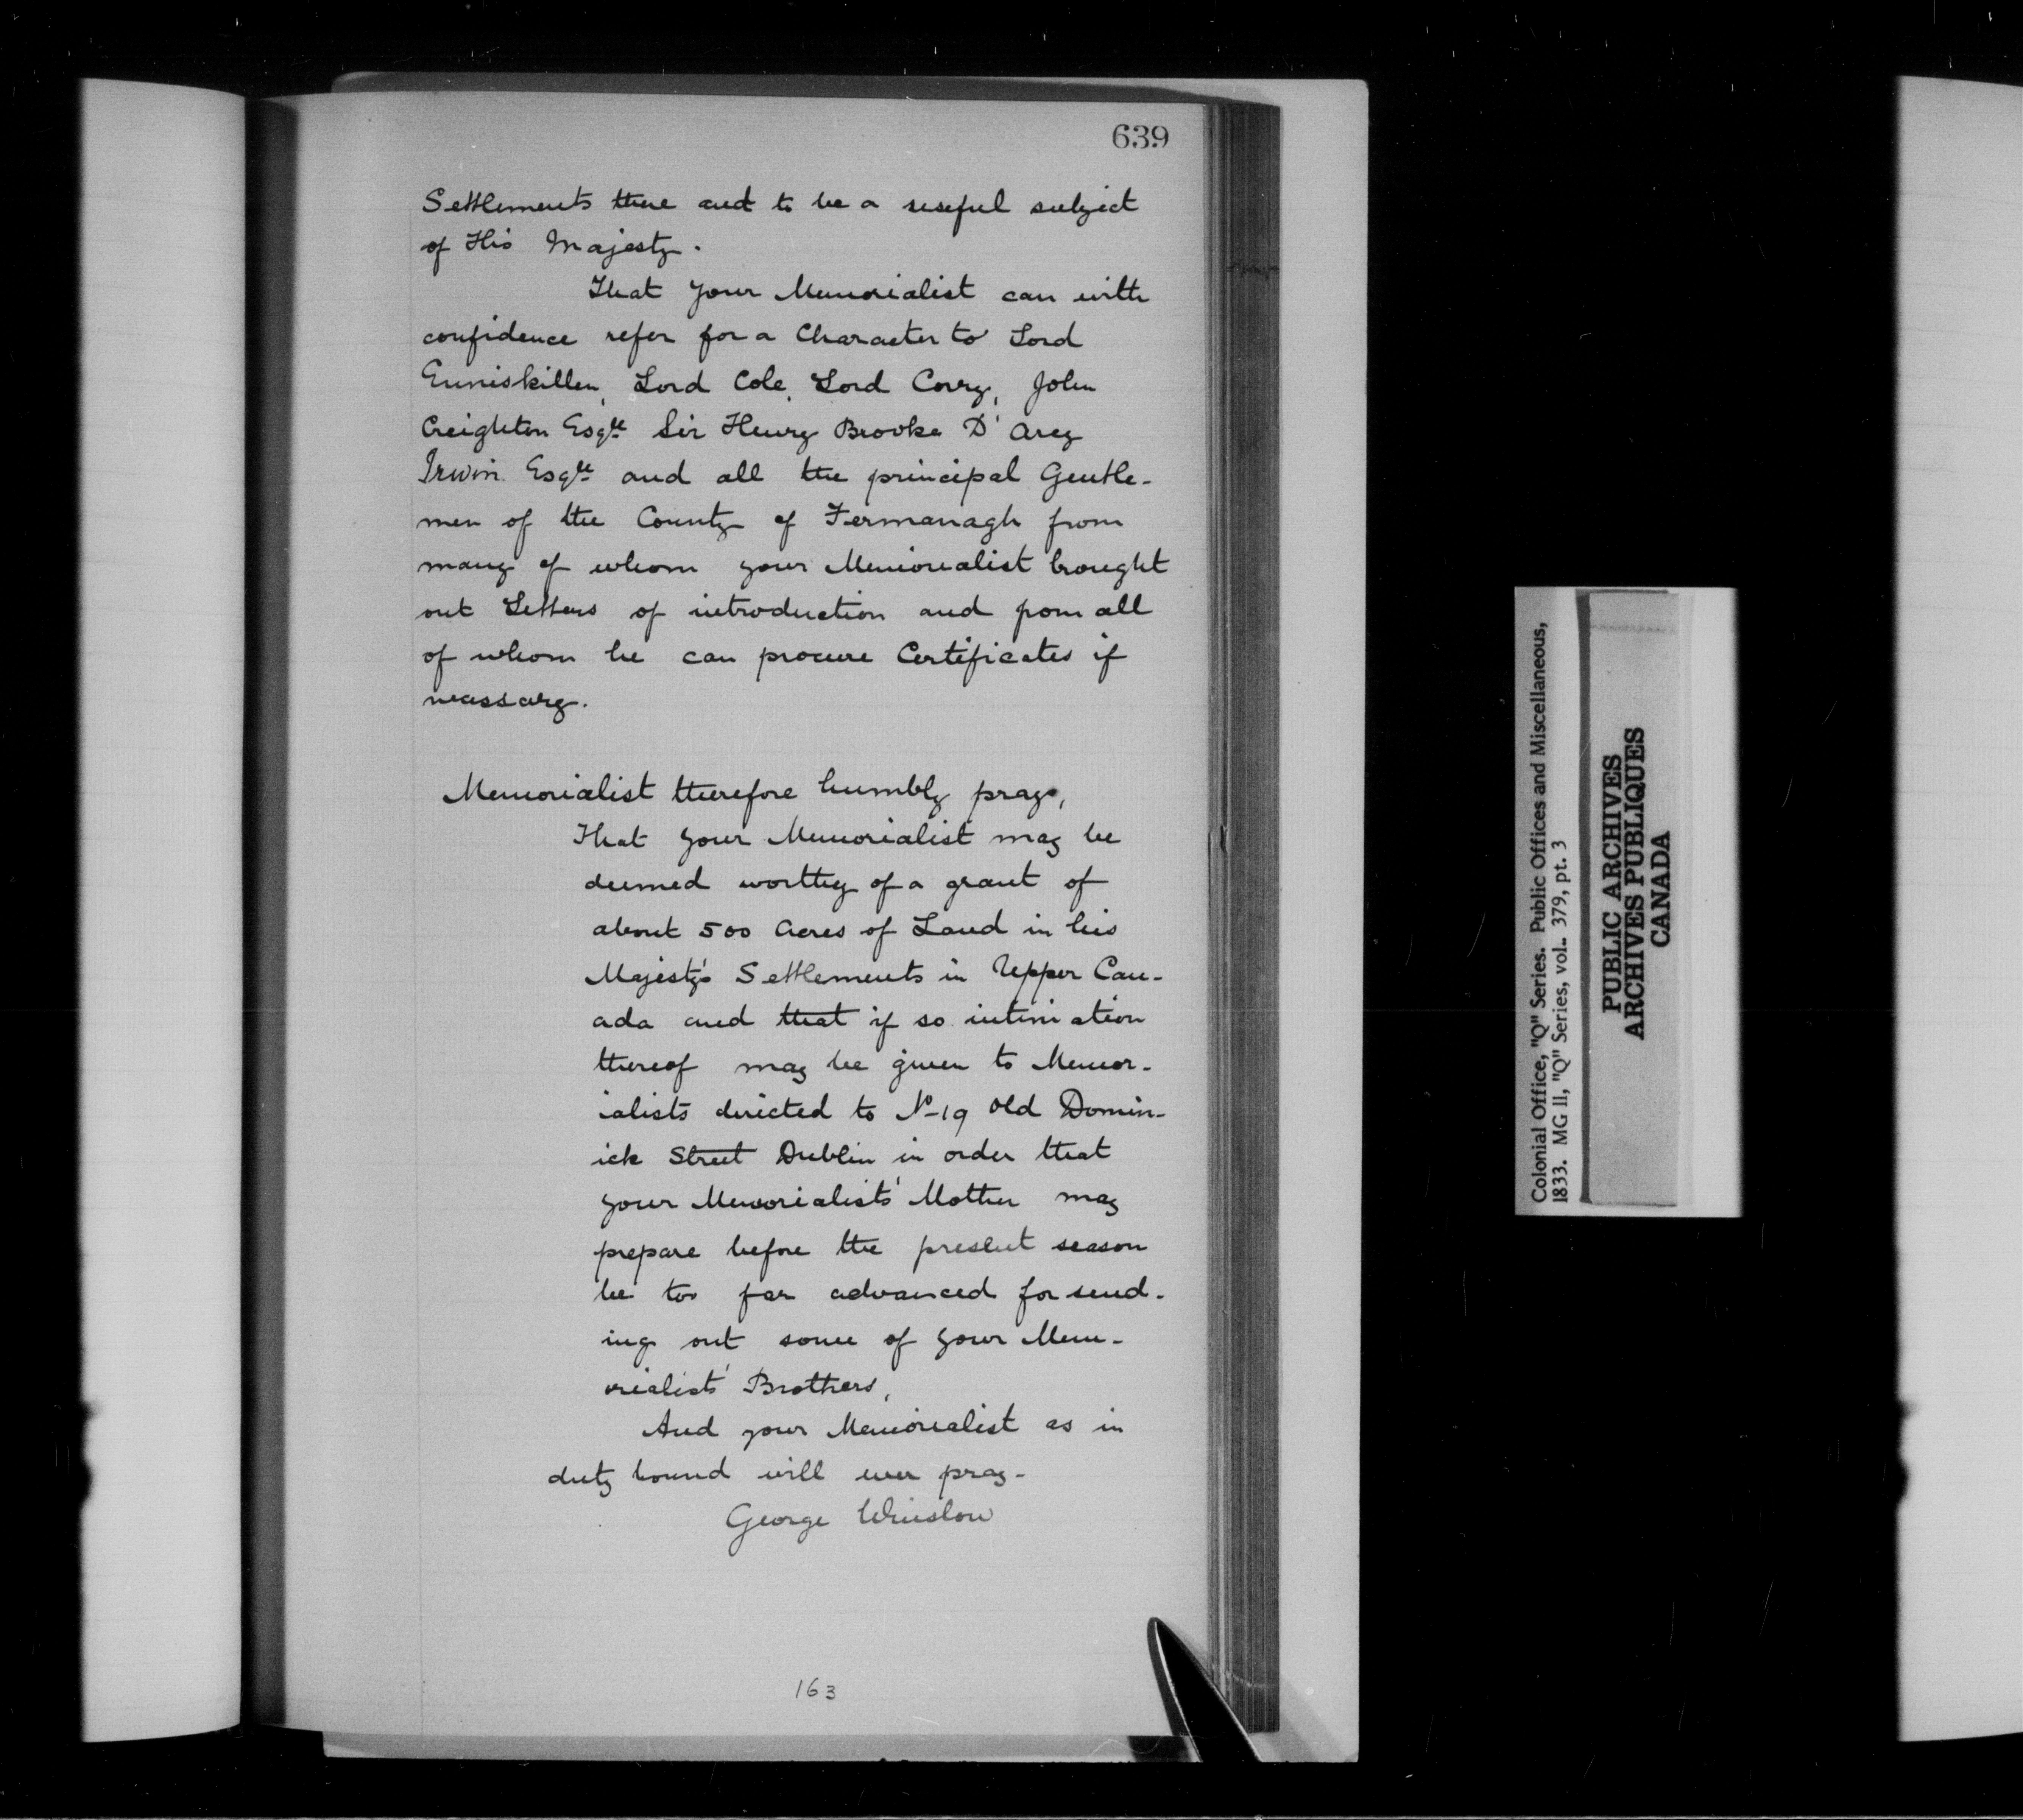 639
Settlements there and to be a useful subject
of His Majesty.
That your Memorialist can with
confidence refer for a Character to Lord
Enniskillen, Lord Cole, Lord Corry, John
Creighton Esqre Sir Henry Brooke D'Arcy
Irwin Esqre and all the principal Gentle-
men of the County of Fermanagh from
many of whom your Memorialist brought
out Letters of introduction and from all
of whom he can procure Certificates if
necessary.
Memorialist therefore humbly prays,
That your Memorialist may be
deemed worthy of a grant of
about 500 Acres of Land in his
Majesty's Settlements in Upper Can-
ada and that if so intimation
thereof may be given to Memor-
ialists directed to No 19 Old Domin-
ick Street Dublin in order that
your Memorialists' Mother may
prepare before the present season
be too far advanced for send-
ing out some of your Mem-
orialists' Brothers,
And your Memorialist as in
duty bound will ever pray-
George Winslow
163
Colonial Office, "Q" Series. Public Offices and Miscellaneous,
1833. MG 11, "Q" Series, vol. 379, pt. 3
PUBLIC ARCHIVES
ARCHIVES PUBLIQUES
CANADA